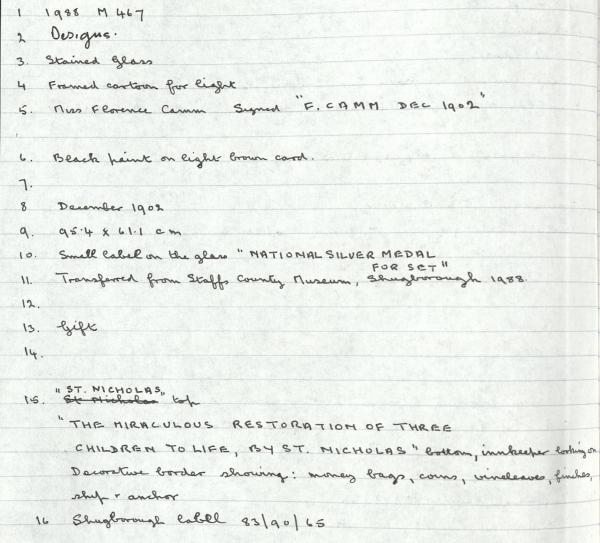 1 1988 M 467
2 Designs.
3. Stained glass
4 Framed cartoon for light
5. Miss Florence Camm Signed "F. CAMM DEC 1902"
6. Black paint on light brown card.
7.
8 December 1902
9. 95.4 x 61.1 cm
10. Small label on the glass "NATIONAL SILVER MEDAL
FOR SET"
11. Transferred from Staffs County Museum, Shugborough 1988.
12.
13. Gift
14.
"ST. NICHOLAS"
15. St Nicholas top
"THE MIRACULOUS RESTORATION OF THREE
CHILDREN TO LIFE, BY ST. NICHOLAS" bottom, innkeeper looking on.
Decorative border showing: money bags, coins, vineleaves, finches,
ship + anchor
16 Shugborough label 83/90/65